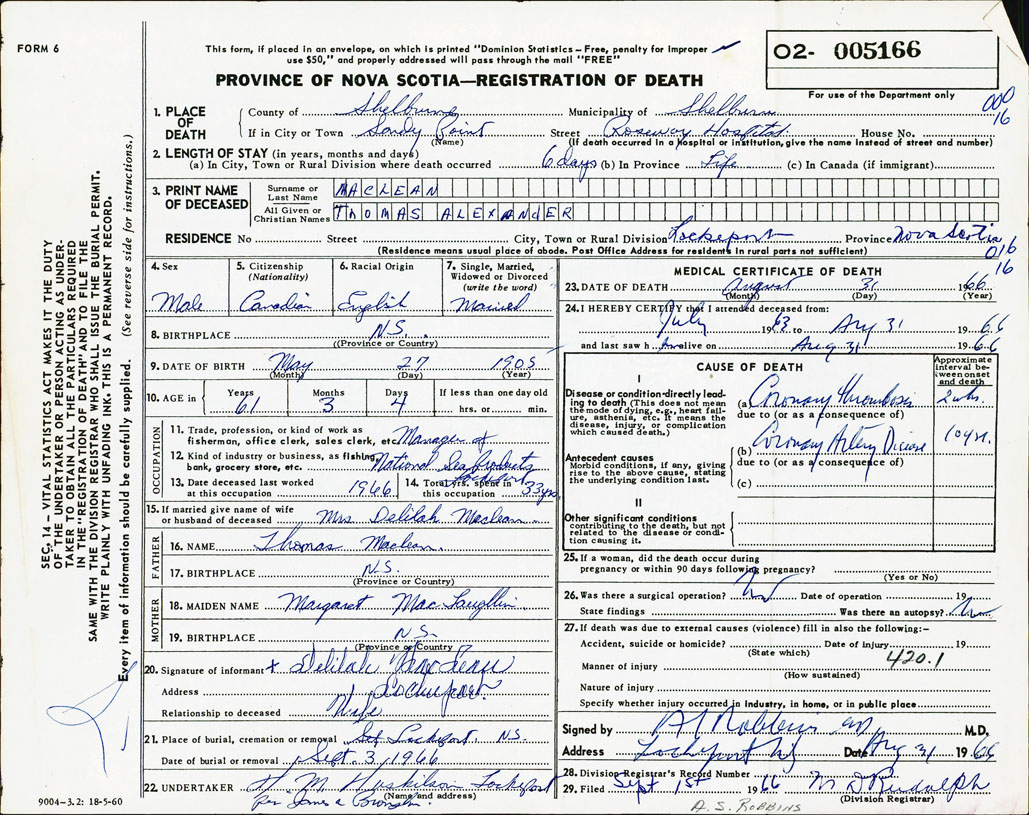 FORM 6
This form, if placed in an envelope, on which is printed "Dominion Statistics – Free, penalty for improper
use $50," and properly addressed will pass through the mail "FREE"
PROVINCE OF NOVA SCOTIA—REGISTRATION OF DEATH
02- 005166
For use of the Department only
000
16
1. PLACE OF DEATH
County of Shelburne Municipality of Shelburn
If in City or Town Sandy Point Street Roseway Hospital House No.
(Name) (If death occurred in a hospital or institution, give the name instead of street and number)
2. LENGTH OF STAY (in years, months and days)
(a) In City, Town or Rural Division where death occurred 6 days (b) In Province Life (c) In Canada (if immigrant)
3. PRINT NAME OF DECEASED
Surname or Last Name MACLEAN
All Given or Christian Names THOMAS ALEXANDER
RESIDENCE No Street City, Town or Rural Division Lockeport Province Nova Scotia
(Residence means usual place of abode. Post Office Address for residents in rural parts not sufficient)
016
16
4. Sex
Male
5. Citizenship (Nationality)
Canadian
6. Racial Origin
English
7. Single, Married, Widowed or Divorced (write the word)
Married
8. BIRTHPLACE N.S.
((Province or Country)
9. DATE OF BIRTH May 27 1905
(Month) (Day) (Year)
10. AGE in Years 61 Months 3 Days 4 If less than one day old hrs. or min.
OCCUPATION
11. Trade, profession, or kind of work as
fisherman, office clerk, sales clerk, etc. Manager of
12. Kind of industry or business, as fishing,
bank, grocery store, etc. National Sea Products
Lockeport
13. Date deceased last worked
at this occupation 1966
14. Total yrs. spent in
this occupation 33 yrs.
15. If married give name of wife
or husband of deceased Mrs Delilah Maclean
FATHER
16. NAME Thomas Maclean.
17. BIRTHPLACE N.S.
(Province or Country)
MOTHER
18. MAIDEN NAME Margaret Mac Laughlin
19. BIRTHPLACE N.S.
(Province or Country)
20. Signature of informant x Delilah MacLean
Address Lockeport
Relationship to deceased Wife
21. Place of burial, cremation or removal Lockeport, N.S.
Date of burial or removal Sept. 3, 1966
22. UNDERTAKER M Lockeport
(Name and address)
per James a
9004–3.2: 18-5-60
MEDICAL CERTIFICATE OF DEATH
23. DATE OF DEATH August 31 1966
(Month) (Day) (Year)
24. I HEREBY CERTIFY that I attended deceased from:
July 1963 to Aug 31 1966
and last saw h im alive on Aug 31 1966
CAUSE OF DEATH
Approximate interval between onset and death
I
Disease or condition directly leading to death (This does not mean the mode of dying, e.g., heart failure, asthenia, etc. It means the disease, injury, or complication which caused death.)
(a) Coronary Thrombosis 2 wks.
due to (or as a consequence of)
Antecedent causes
Morbid conditions, if any, giving rise to the above cause, stating the underlying condition last.
(b) Coronary Artery Disease 10 yrs.
due to (or as a consequence of)
(c)
II
Other significant conditions
contributing to the death, but not related to the disease or condition causing it.
25. If a woman, did the death occur during
pregnancy or within 90 days following pregnancy?
(Yes or No)
26. Was there a surgical operation? No Date of operation 19
State findings Was there an autopsy? No
27. If death was due to external causes (violence) fill in also the following:–
Accident, suicide or homicide? Date of injury 19
(State which)
420.1
Manner of injury
(How sustained)
Nature of injury
Specify whether injury occurred in industry, in home, or in public place
Signed by A S Robbins MD M.D.
Address Lockeport NS Date Aug 31 1966
28. Division Registrar's Record Number
29. Filed Sept 1st 1966 M D Rudolph
(Division Registrar)
A. S. ROBBINS
SEC. 14 – VITAL STATISTICS ACT MAKES IT THE DUTY
OF THE UNDERTAKER OR PERSON ACTING AS UNDER-
TAKER TO OBTAIN ALL THE PARTICULARS REQUIRED
IN THE "REGISTRATION OF DEATH" AND TO FILE THE
SAME WITH THE DIVISION REGISTRAR WHO SHALL ISSUE THE BURIAL PERMIT.
WRITE PLAINLY WITH UNFADING INK. THIS IS A PERMANENT RECORD.
Every item of information should be carefully supplied. (See reverse side for instructions.)